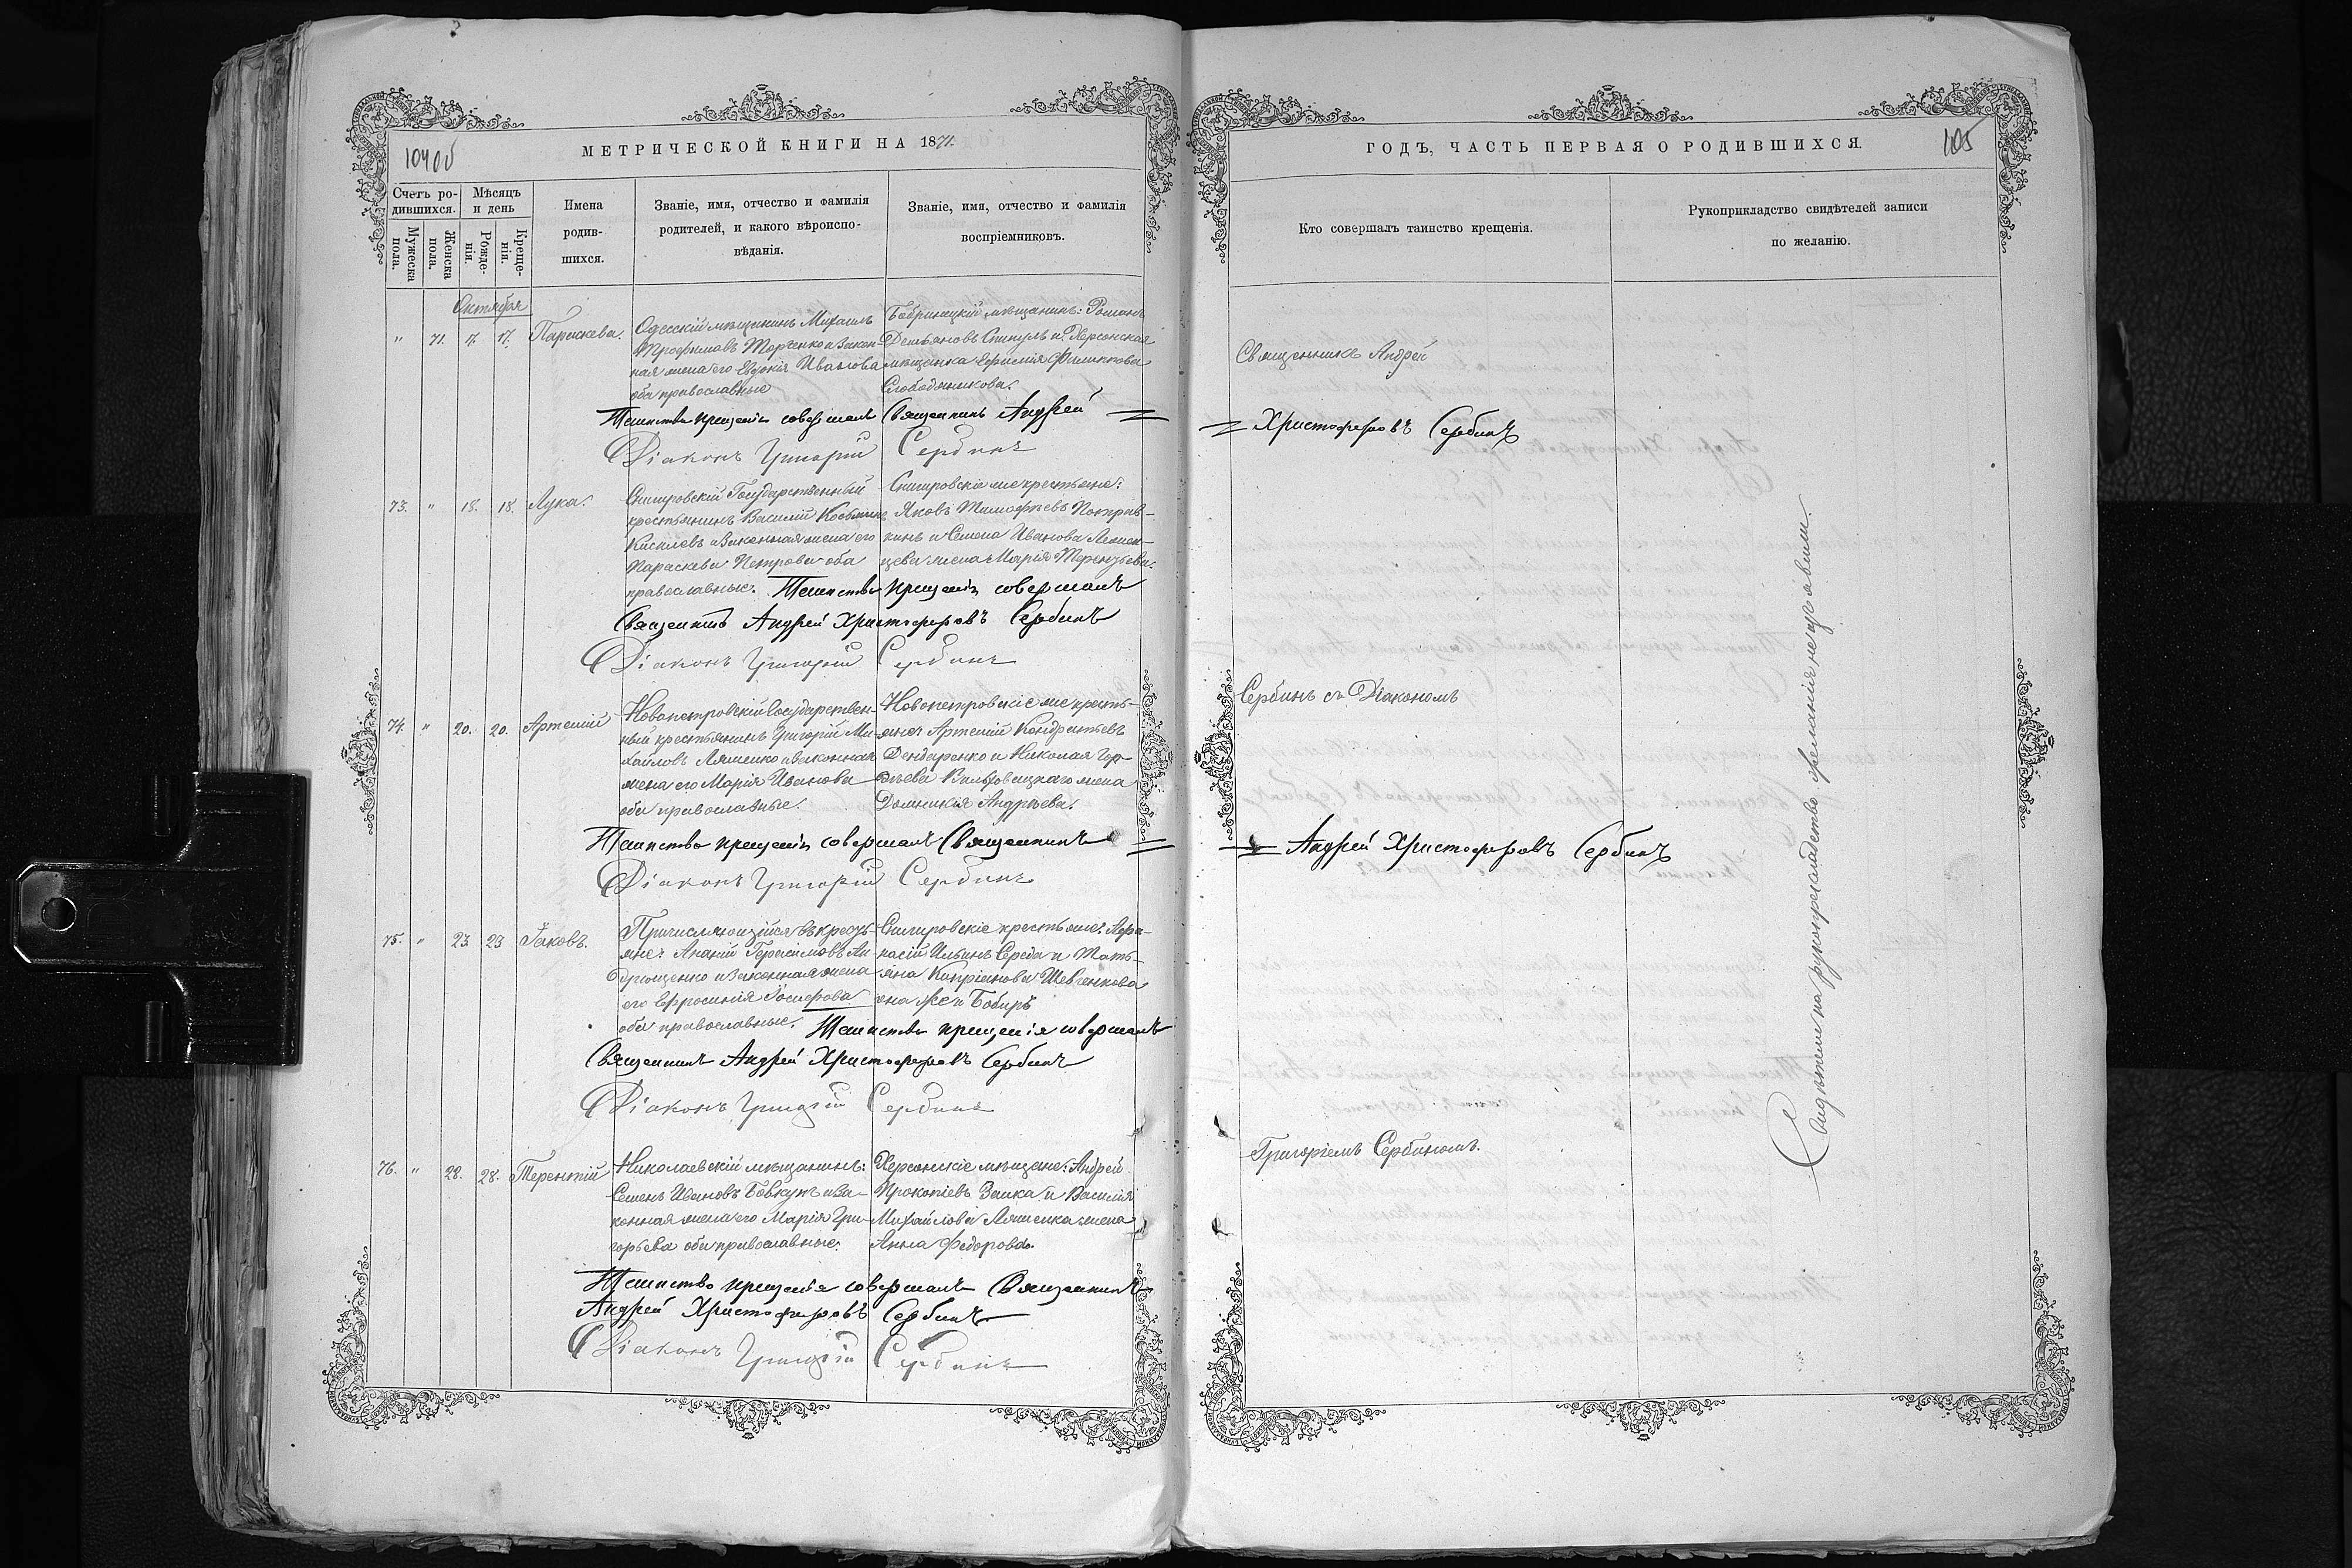 МЕТРИЧЕСКОЙ КНИГИ НА 1871.
Счетъ ро-
дившихся.
Мужеска
пола.
Женска
пола.
Мѣсяцъ
и день
Рожде-
нія.
Креще-
нія.
Имена
родив-
шихся.
Званіе, имя, отчество и фамилія
родителей, и какого вѣроиспо-
вѣданія.
Званіе, имя, отчество и фамилія
воспріемниковъ.
Октября
" 71. 17. 17. Параскева.
Одесскій мѣщанинъ Михаилъ
Трофимовъ Торченко и закон-
ная жена его Евдокія Иванова
оба православные
Бобринецкій мѣщанинъ: Романъ
Демьяновъ и Херсонская
мѣщанка Ефимія Филиппова
Слободяникова.
Таинство крещенія совершалъ Священникъ Андрей
Діаконъ Григорій Сербинъ
73. " 18. 18. Лука.
Снигировскій Государственный
крестьянинъ Василій Косминъ
Киселевъ и законная жена его
Параскева Петрова оба
православные.
Снигировскіе же крестьяне:
Яковъ Тимофѣевъ Потрив-
кинъ и Семена Иванова
жена Марія Терентьева.
Таинство крещенія совершалъ
Священникъ Андрей Христофоровъ Сербинъ
Діаконъ Григорій Сербинъ
74. " 20. 20. Артемій
Новопетровскій Государствен-
ный крестьянинъ Григорій Ми-
хайловъ Ляшенко и законная
жена его Марія Иванова
оба православные.
Новопетровскіе же кресть-
яне: Артемій Кондратьевъ
Дендаренко и Николая
жена
Домникія Андреева.
Таинство крещенія совершалъ Священникъ
Діаконъ Григорій Сербинъ
75. " 23. 23 Іаковъ.
Причисляющійся въ кресть-
яне: Ананій Герасимовъ Ан-
дрющенко и законная жена
его Ефросинія Іосифова
оба православные.
Снигировскіе крестьяне: Афа-
насій Ильинъ Середа и Тать-
яна Кипріанова Шевченкова
она же и Бобырь
Таинство крещенія совершалъ
Священникъ Андрей Христофоровъ Сербинъ
Діаконъ Григорій Сербинъ
76. " 22. 28. Терентій
Николаевскій мѣщанинъ:
Семенъ Ивановъ Бовкунъ и за-
конная жена его Марія Гри-
горьева оба православные.
Херсонскіе мѣщане: Андрей
Прокопіевъ Заика и Василія
Михайлова Ляшенка жена
Анна Федорова.
Таинство крещенія совершалъ Священникъ
Андрей Христофоровъ Сербинъ
Діаконъ Григорій Сербинъ
ГОДЪ, ЧАСТЬ ПЕРВАЯ О РОДИВШИХСЯ.
105
Кто совершалъ таинство крещенія.
Рукоприкладство свидѣтелей записи
по желанію.
Священникъ Андрей
Христофоровъ Сербинъ
Сербинъ съ Діакономъ
Андрей Христофоровъ Сербинъ
Григоріемъ Сербиномъ.
Свидѣтели на рукоприкладство желанія не изъявили.